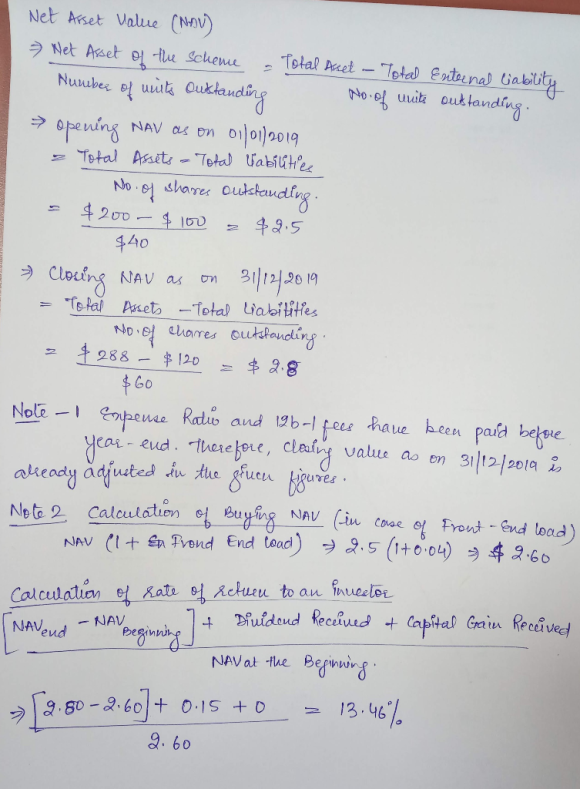 Net Asset Value (NAV)
⇒ Net Asset of the scheme / Number of units Outstanding = Total Asset – Total External Liability / No. of units outstanding.
⇒ opening NAV as on 01/01/2019
= Total Assets – Total Liabilities / No. of shares outstanding.
= $200 – $100 / $40 = $2.5
⇒ Closing NAV as on 31/12/2019
= Total Assets – Total Liabilities / No. of shares outstanding.
= $288 – $120 / $60 = $2.8
Note – 1 Expense Ratio and 12b-1 fees have been paid before
year-end. Therefore, closing value as on 31/12/2019 is
already adjusted in the given figures.
Note 2 Calculation of Buying NAV (in case of Front-End load)
NAV (1 + Frond End load) ⇒ 2.5 (1+0.04) ⇒ $2.60
Calculation of rate of return to an investor
[NAVend – NAVBeginning] + Dividend Received + Capital Gain Received / NAV at the Beginning.
⇒ [2.80 – 2.60] + 0.15 + 0 / 2.60 = 13.46%